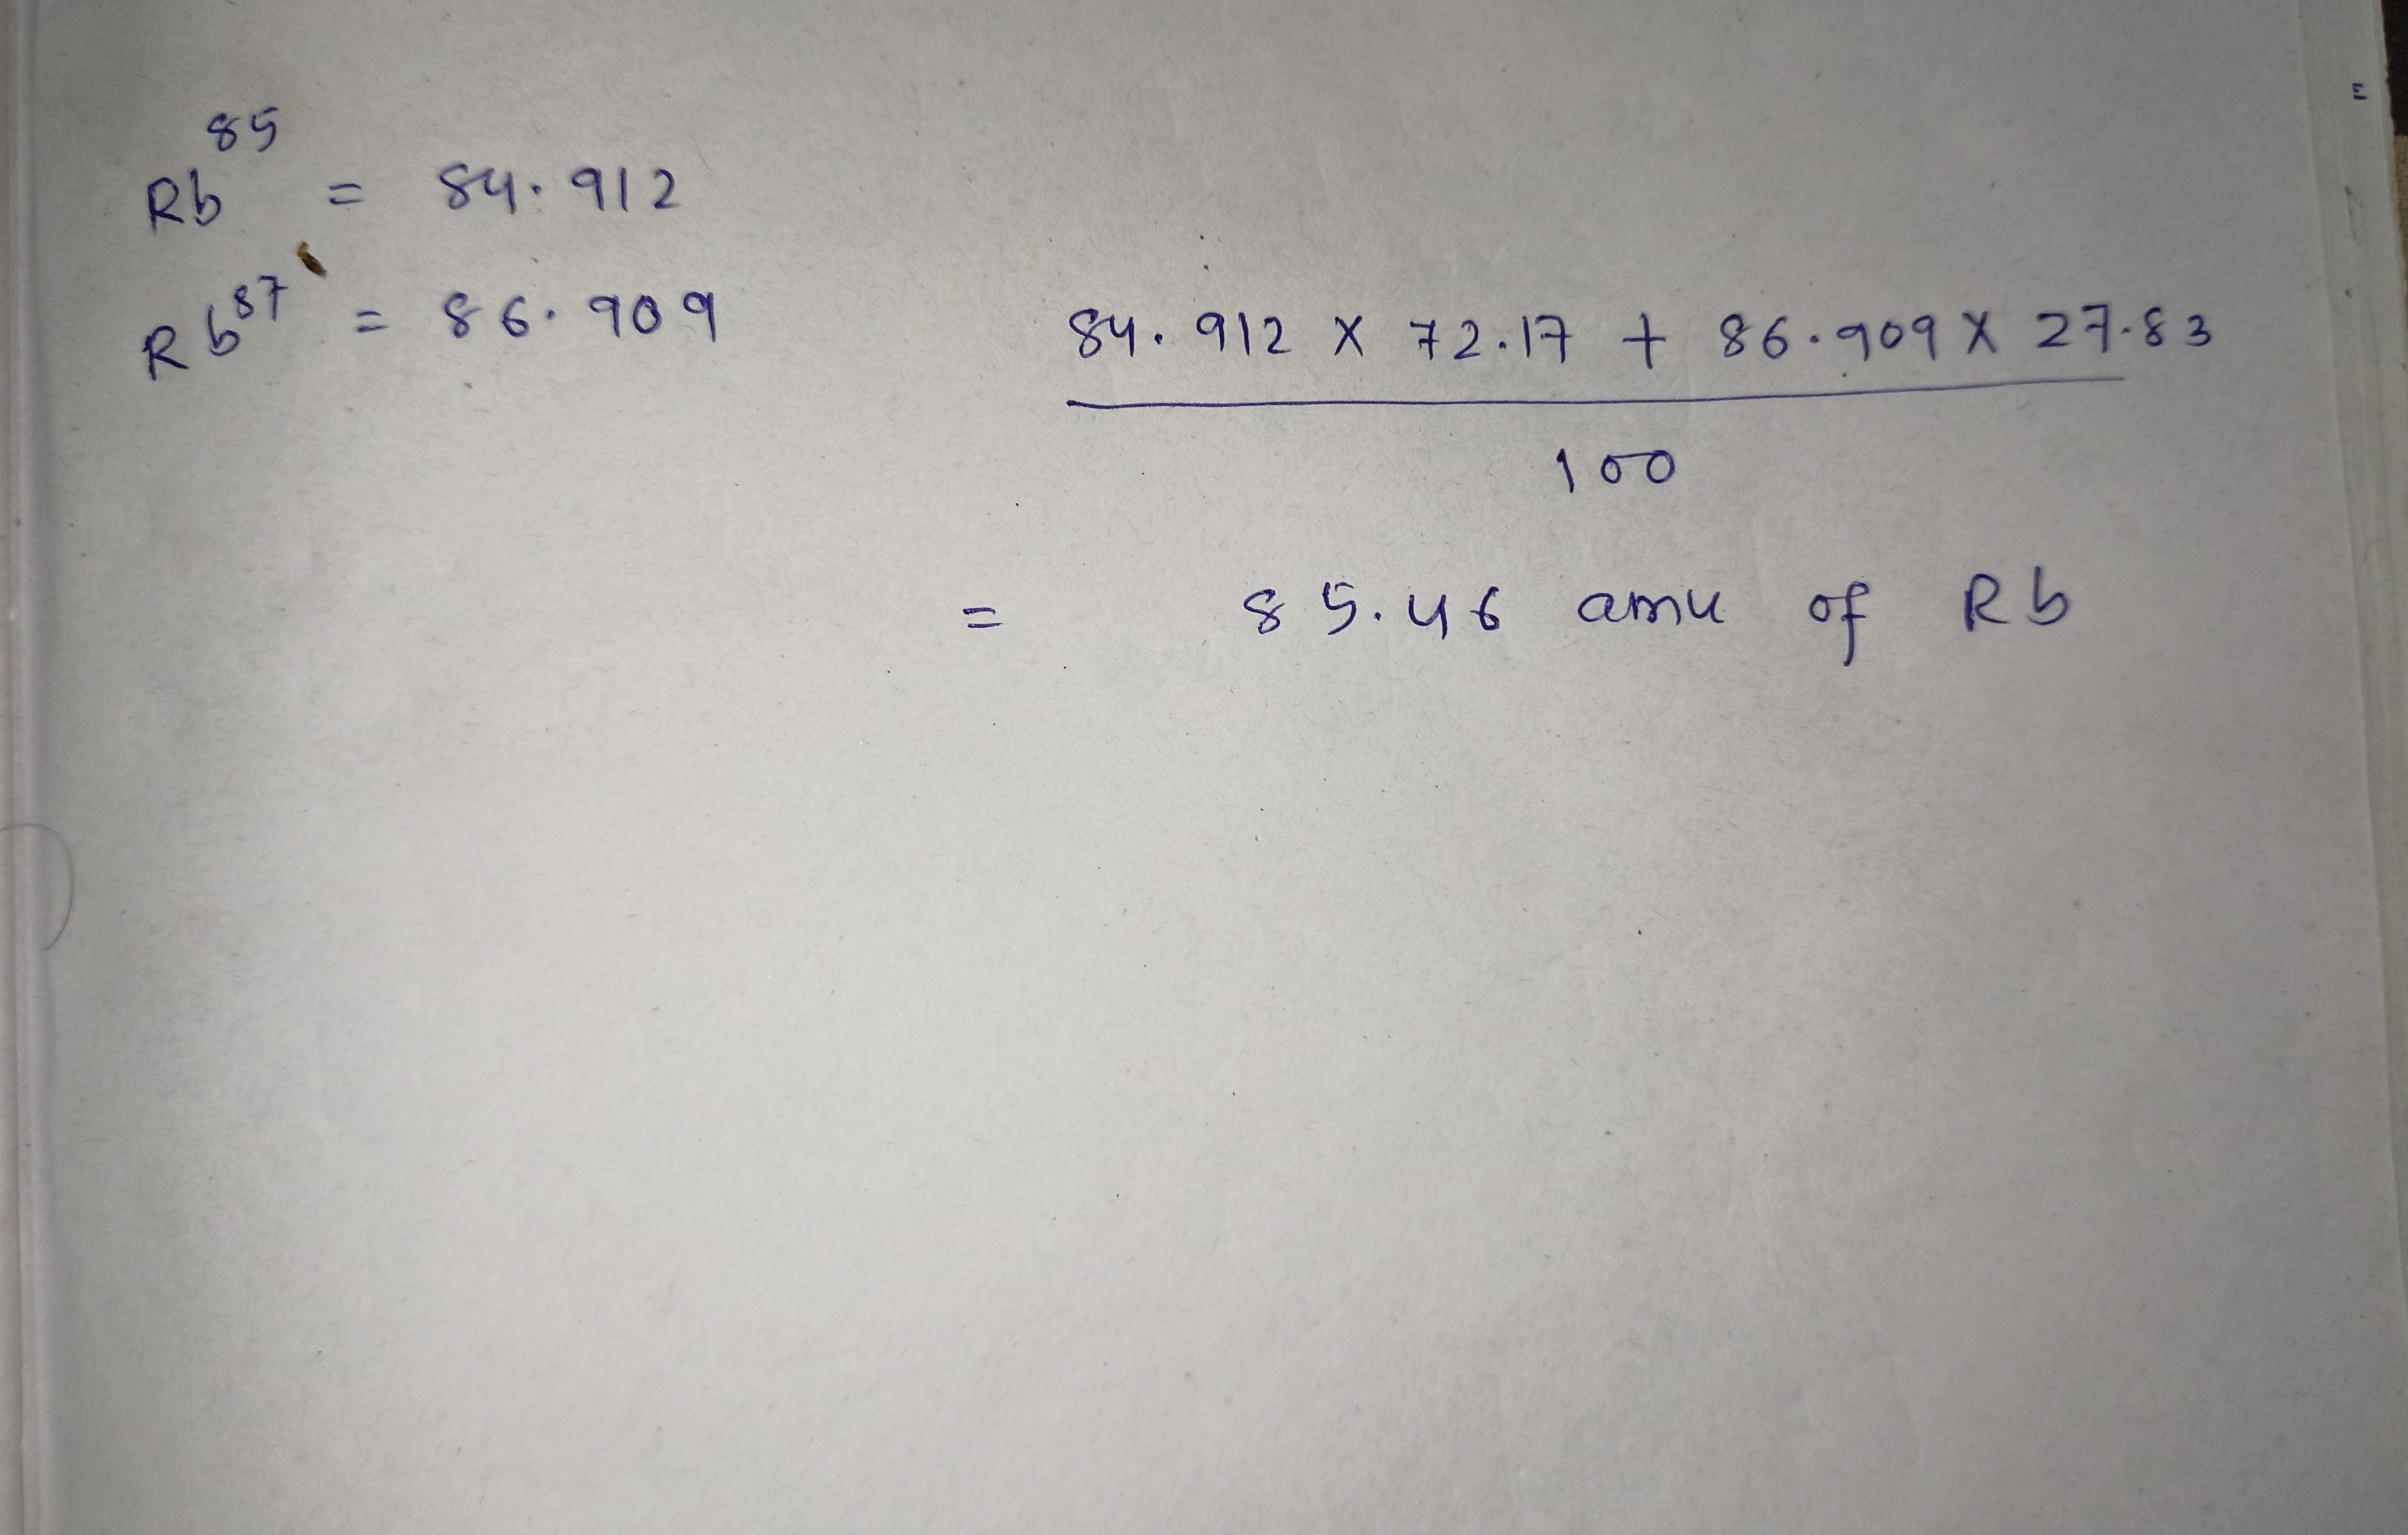 Rb⁸⁵ = 84.912
Rb⁸⁷ = 86.909
84.912 x 72.17 + 86.909 x 27.83
100
= 85.46 amu of Rb
=